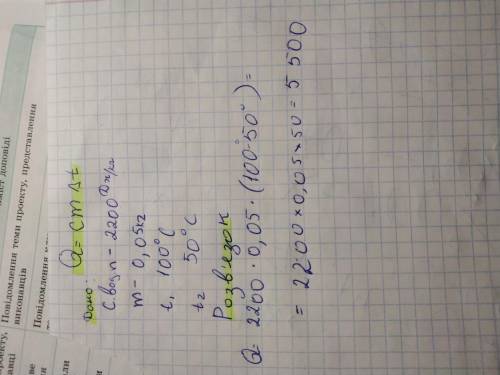 Дано: Q = cm Δt
C вод п - 2200 Дж/кг
m - 0,05 кг
t₁ 100°C
t₂ 50°C
Розв'язок
Q = 2200 · 0,05 · (100° - 50°) =
= 2200 × 0,05 × 50 = 5 500
зміст доповіді
Повідомлення теми проекту, представлення
виконавців
Повідомлення